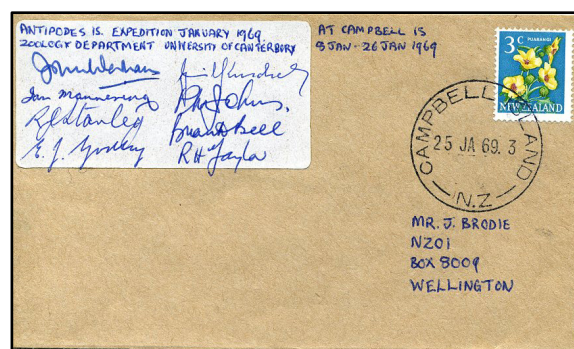 ANTIPODES IS. EXPEDITION JANUARY 1969.
ZOOLOGY DEPARTMENT UNIVERSITY OF CANTERBURY
John Warham
Ian Mannering
P M Johns.
R E Stanley
Brian D Bell
E. J. Godley
R H Taylor
AT CAMPBELL IS
8 JAN - 26 JAN 1969
PUARANGI
3c
NEW ZEALAND
CAMPBELL ISLAND
25 JA 69. 3
N.Z
MR. J. BRODIE
NZOI
BOX 8009
WELLINGTON